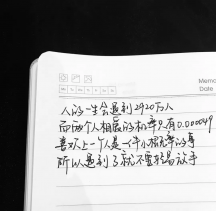 Memo
Date
人的一生会遇到2920万人
而两个人相爱的机率只有0.000049
喜欢上一个人是一件小概率的事
所以遇到了就不要轻易放手